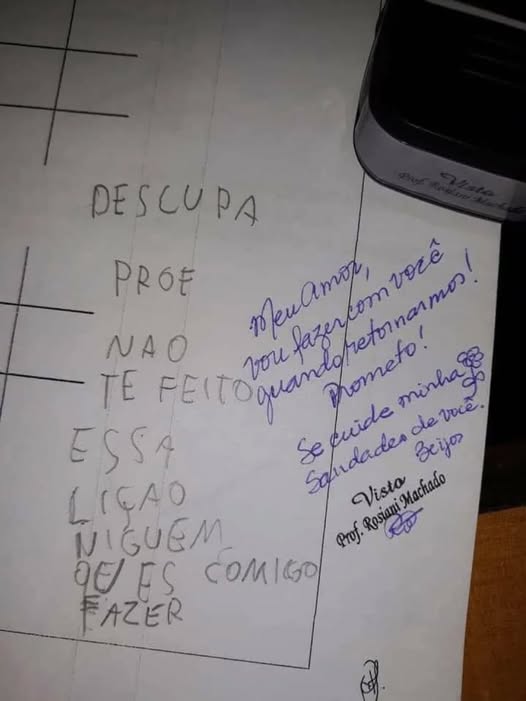 DESCUPA
PROE
NAO
TE FEITO
ESSA
LIÇAO
NIGUEM
COMIGO
FAZER
Meu Amor,
vou fazer com você
quando retornarmos!
Prometo!
Se cuide minha
Saudades de você.
Beijos
Visto
Prof. Rosiani Machado
Visto
Prof. Rosiani Machado